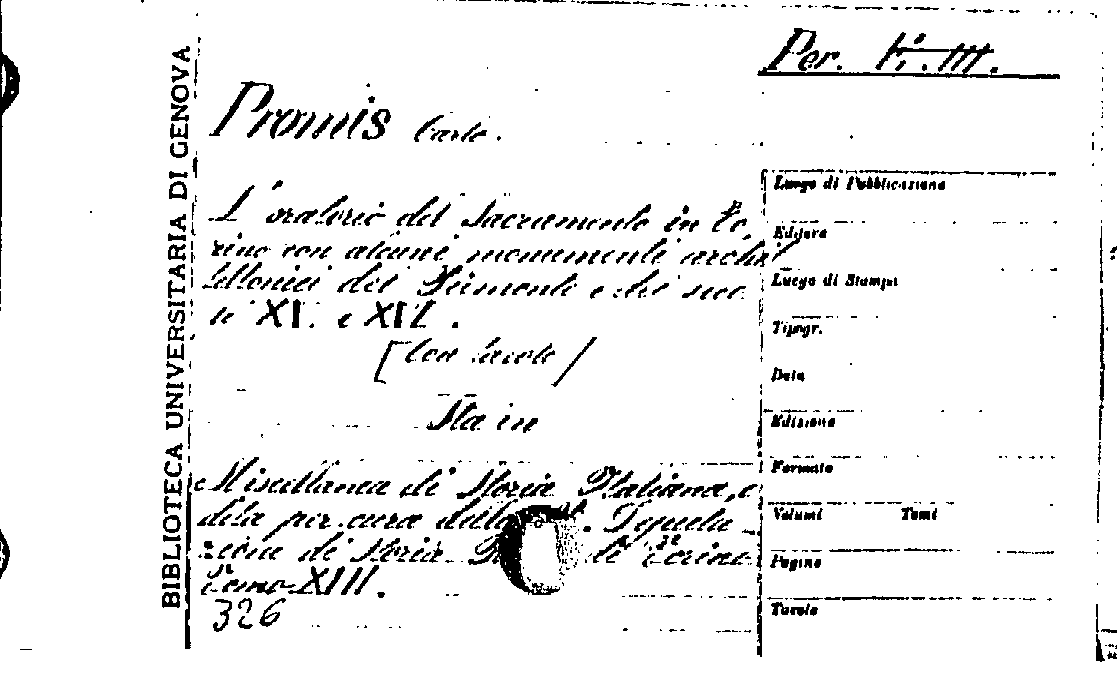 Per. F. III.
BIBLIOTECA UNIVERSITARIA DI GENOVA
Promis Carlo.
L'oratorio del Sacramento in To,
rino con alcuni monumenti archi
tettonici del Piemonte e dei seco
li XI. e XII.
[Con tavole]
Sta in
Miscellanea di Storia Italiana, e
dita per cura della . Deputa
zione di Storia di Torino
Tomo XIII.
326
Luogo di Pubblicazione
Editore
Luogo di Stampa
Tipogr.
Data
Edizione
Formato
Volumi Tomi
Pagine
Tavole